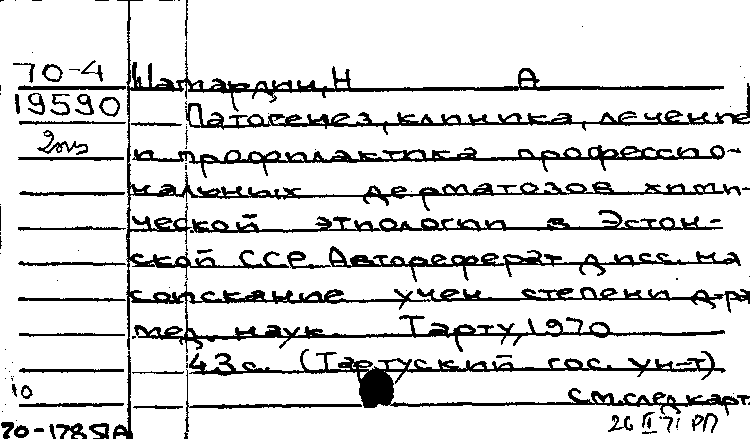 70-4 Шамардин, Н А
19590 Патогенез, клиника, лечение
2 экз и профилактика профессио-
нальных дерматозов хими-
ческой этиологии в Эстон-
ской ССР. Автореферат дисс. на
соискание учен. степени д-ра
мед. наук. Тарту, 1970
43 с. (Тартуский гос. ун-т)
10
см. след. карт.
70-17851А 26 II 71 РП